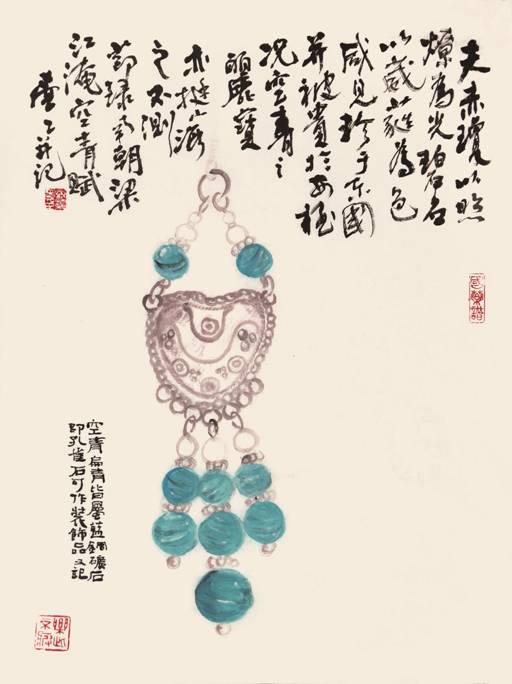 夫赤瓊以照
燎為光碧石
以葳蕤為色
咸見珍于東國
并被貴於西極
況空青之
麗寶
亦挺海
之不測
節録南朝梁
江淹空青賦
并記
空青扁青皆屬藍銅礦石
即孔雀石可作裝飾品又記